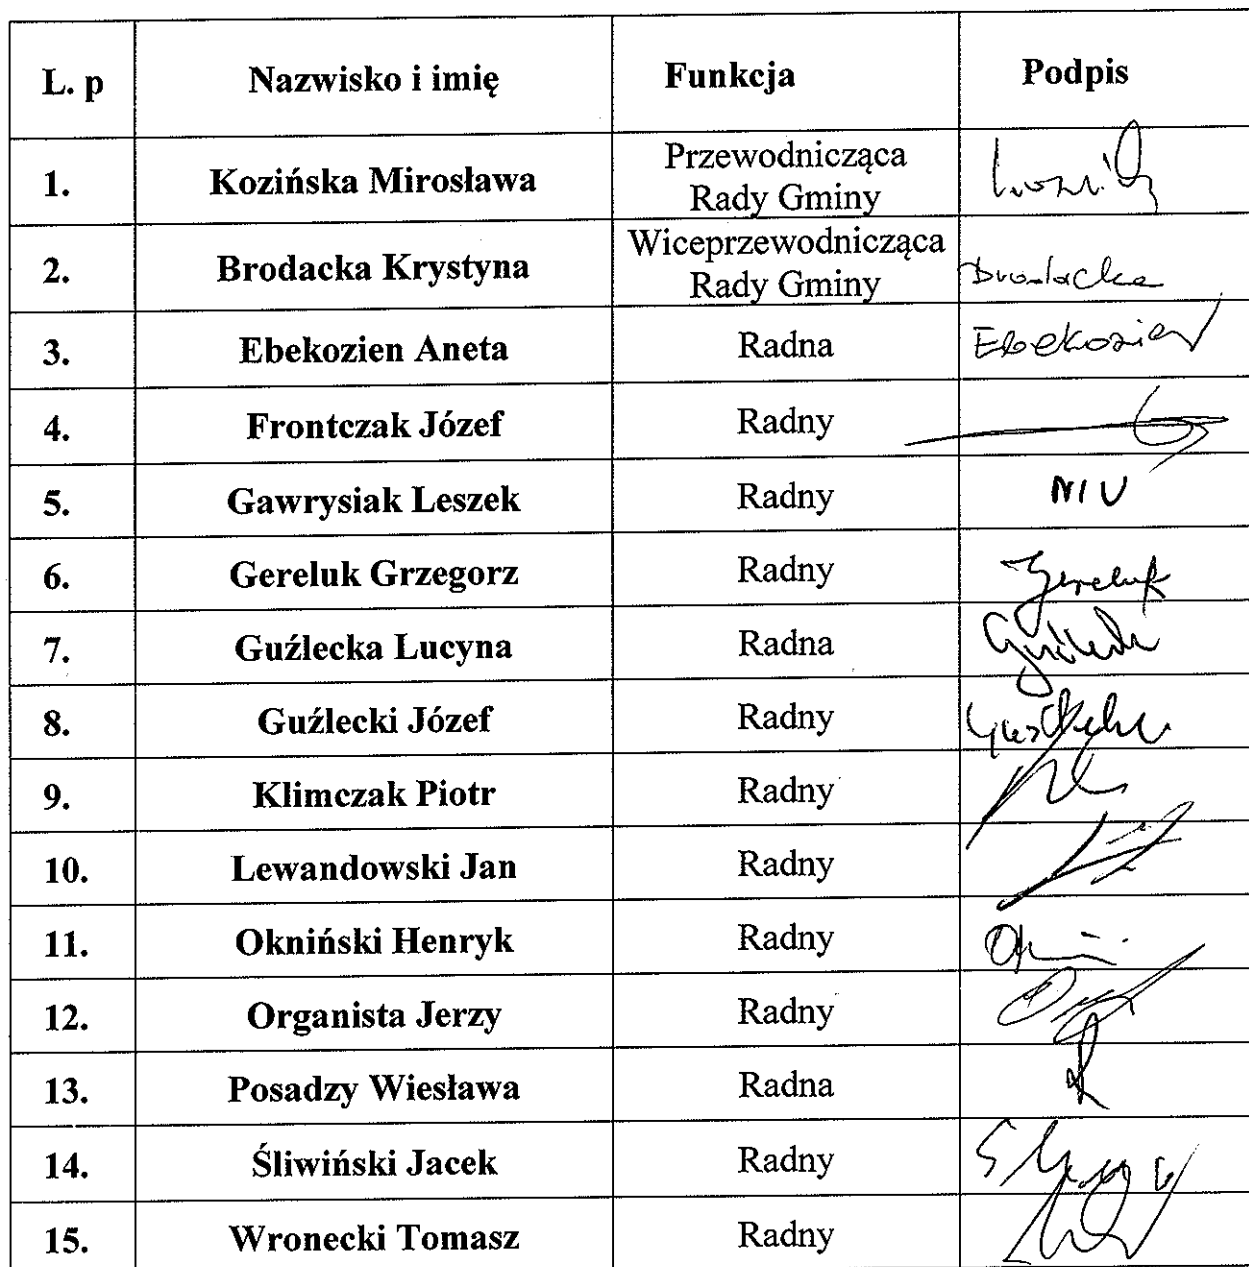 L. p Nazwisko i imię Funkcja Podpis
1. Kozińska Mirosława Przewodnicząca
Rady Gminy
2. Brodacka Krystyna Wiceprzewodnicząca
Rady Gminy Brodacka
3. Ebekozien Aneta Radna Ebekozien
4. Frontczak Józef Radny
5. Gawrysiak Leszek Radny
6. Gereluk Grzegorz Radny Gereluk
7. Guźlecka Lucyna Radna
8. Guźlecki Józef Radny
9. Klimczak Piotr Radny
10. Lewandowski Jan Radny
11. Okniński Henryk Radny
12. Organista Jerzy Radny
13. Posadzy Wiesława Radna
14. Śliwiński Jacek Radny
15. Wronecki Tomasz Radny